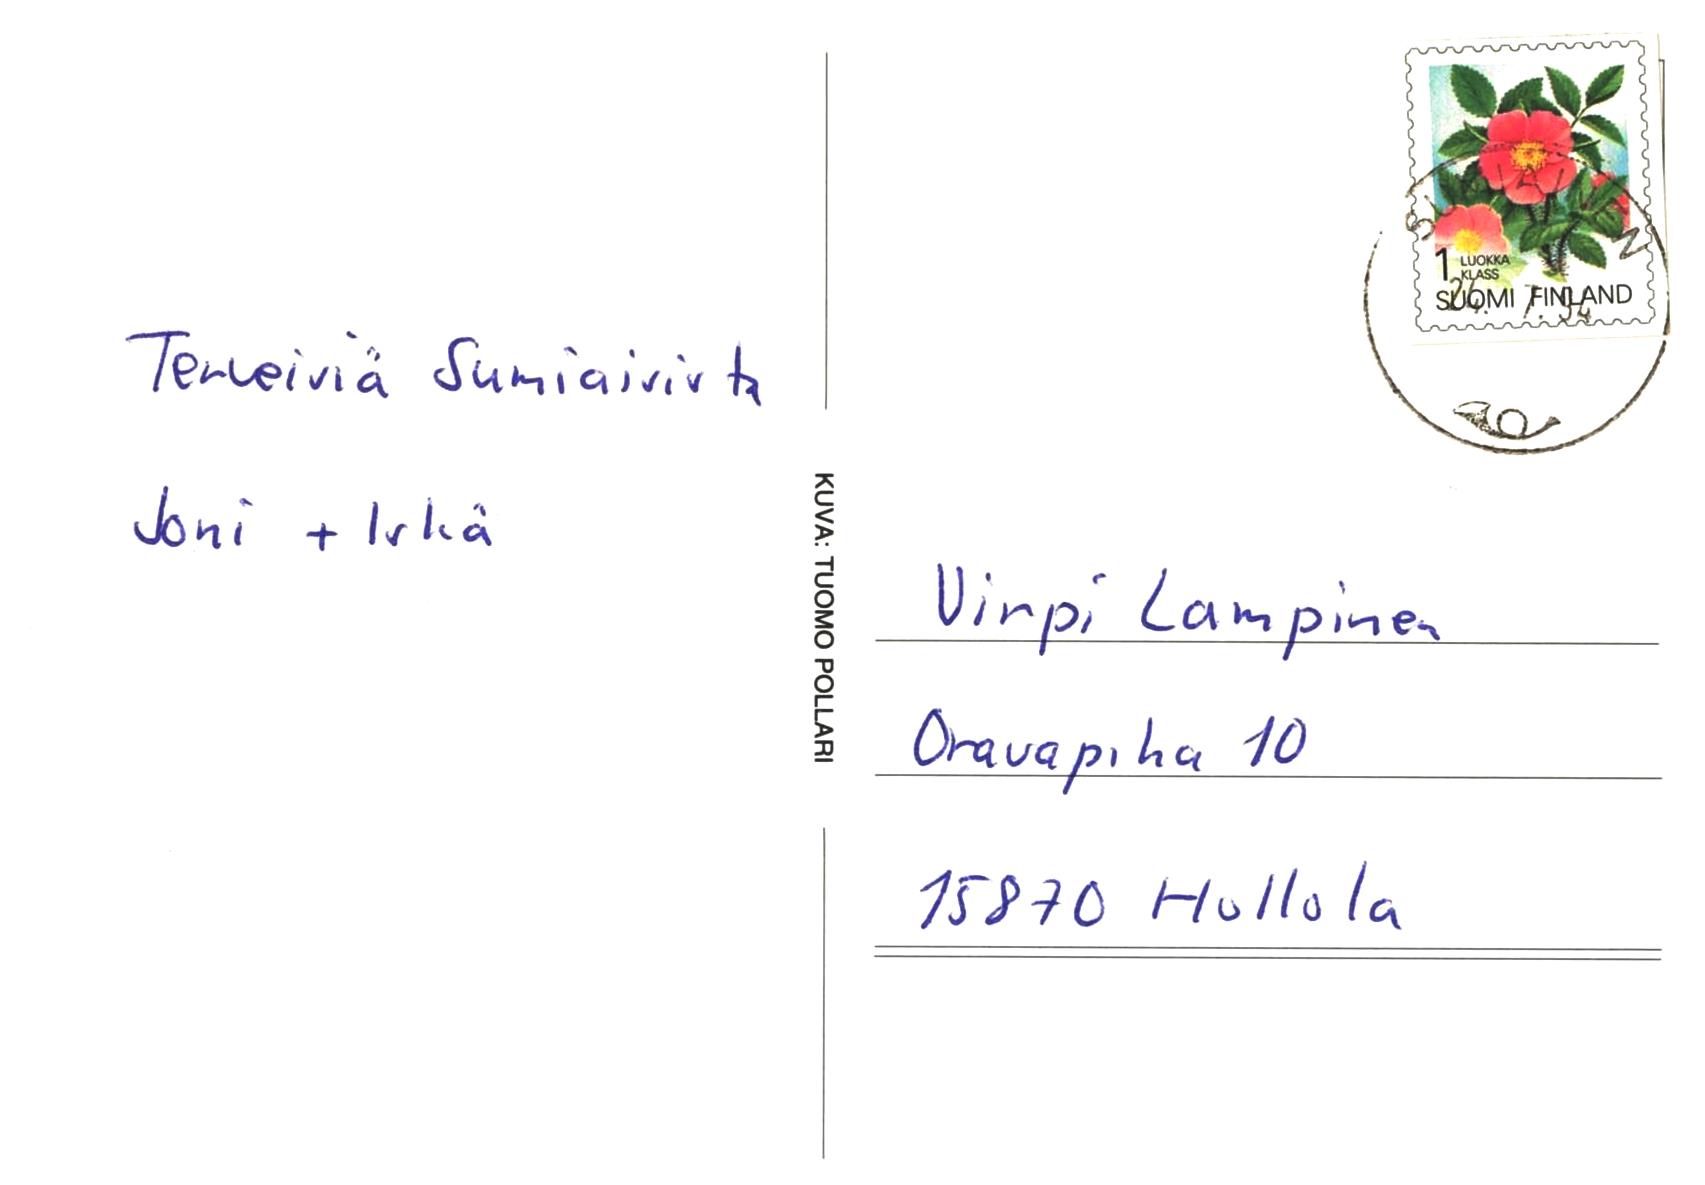 Terveiviä Sumiaivivta
Joni + Iskä
KUVA: TUOMO POLLARI
1 LUOKKA
KLASS
SUOMI FINLAND
Virpi Lampinen
Oravapiha 10
15870 Hollola